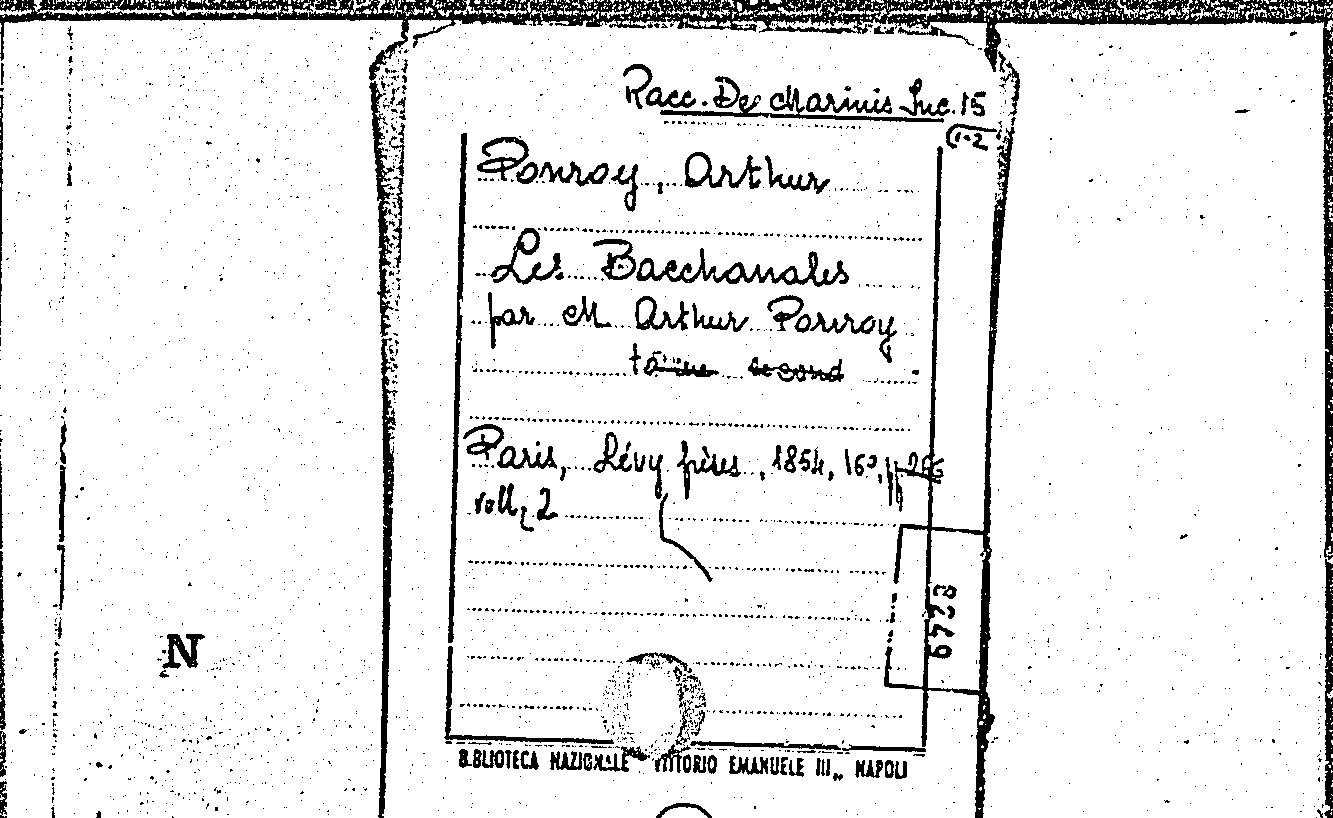 Racc. De Marinis Inc. 15
(1-2
Ponroy, Arthur
Les Bacchanales
par M Arthur Ponroy
tome second
Paris, Lévy frères, 1854, 16°,
voll. 2
6728
N
BIBLIOTECA NAZIONALE "VITTORIO EMANUELE III„ NAPOLI